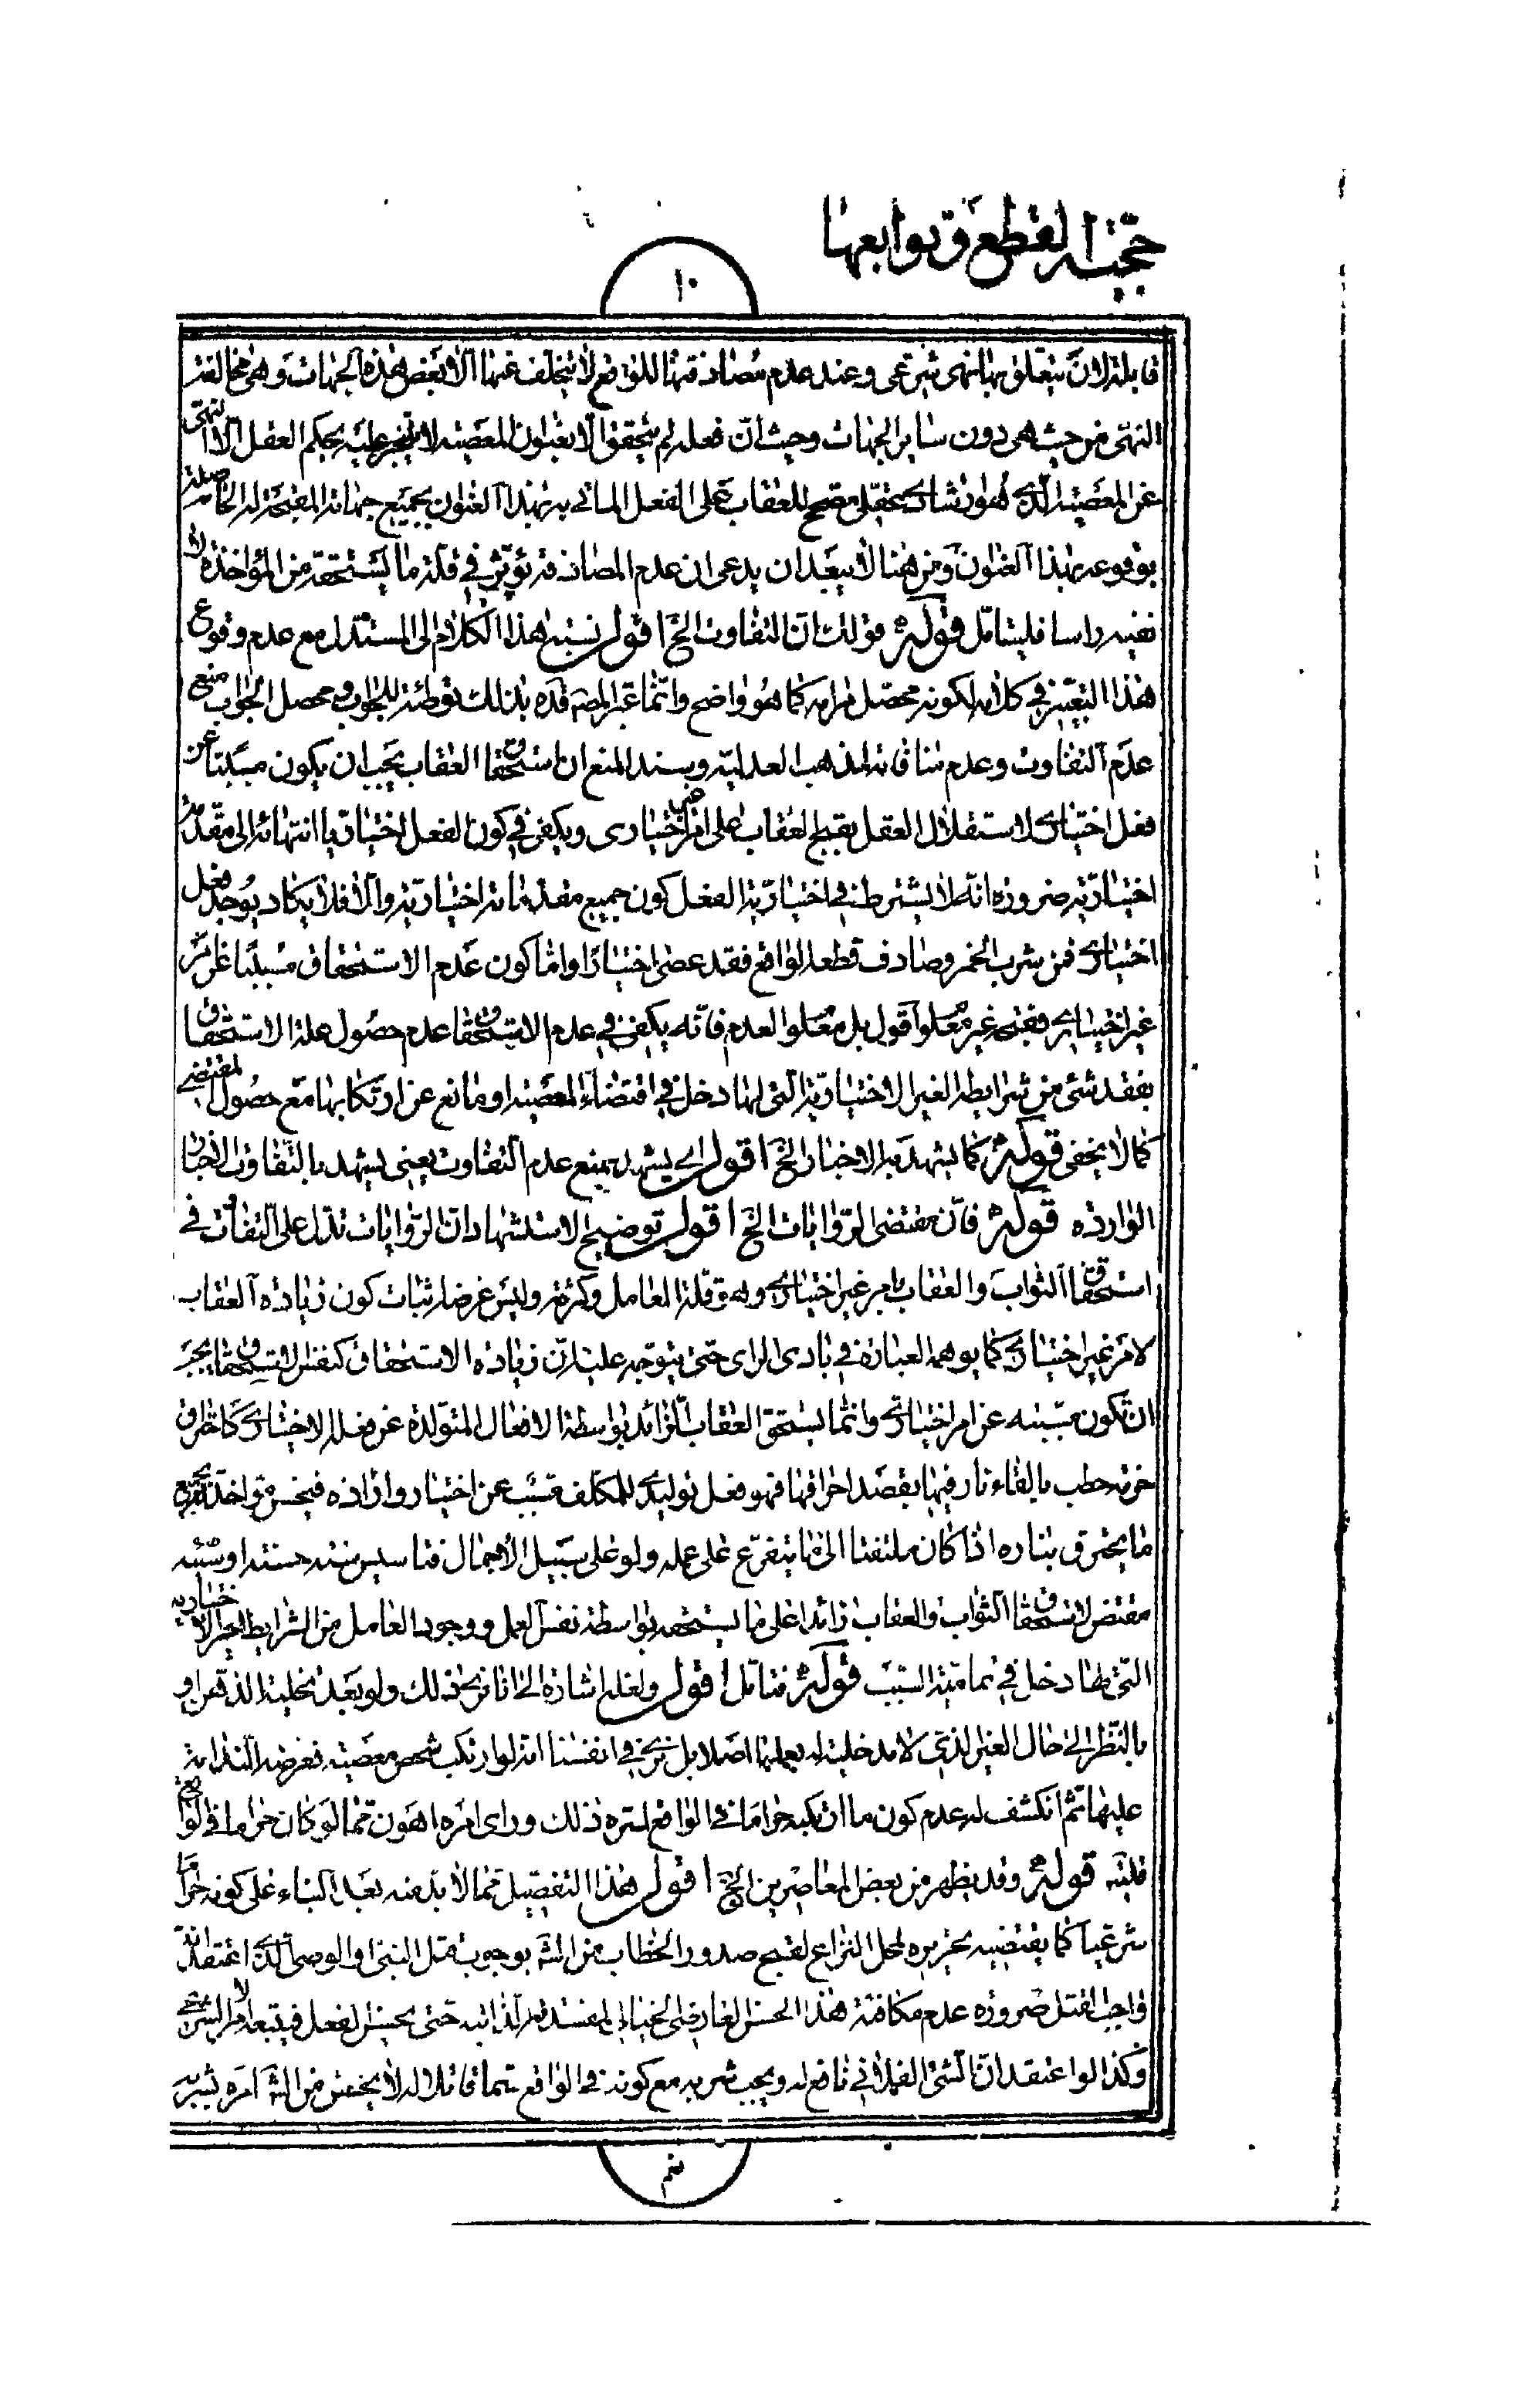 حجية القطع وتوابعها
١٠
قابلة لان يتعلق بها نهى شرعى وعند عدم مصادفتها للواقع لا يتخلف عنها الا بعض هذه الجهات وهى مخالفة
النهى من حيث هى دون ساير الجهات وحيث ان فعله لم يتحقق الا بعنوان المعصية لا يقبح عليه بحكم العقل الا النهى
عن المعصية الذى هو ارشادى عقلى مصحح للعقاب على الفعل الماتى به بهذا العنوان بجميع جهاته المقبحة له الحاصلة
بوقوعه بهذا العنوان ومن هنا لا يبعد ان يدعى ان عدم المصادفة يؤثر فى قلة ما يستحقه من المؤاخذة لا
نفيه راسا فليتامل قوله ره قولك ان التفاوت الخ اقول نسبة هذا الكلام الى المستدل مع عدم وقوع
هذا التعبير فى كلامه لكونه محصل مرامه كما هو واضح وانما عبر المصنف قده بذلك توطئة للجواب ومحصل الجواب منع
عدم التفاوت وعدم منافاته لمذهب العدلية وسند المنع ان استحقاق العقاب يجب ان يكون مسببا عن
فعل اختيارى لاستقلال العقل بقبح العقاب على امر غير اختيارى ويكفى فى كون الفعل اختياريا انتهائه الى مقدمة
اختيارية ضرورة انه لا يشترط فى اختيارية الفعل كون جميع مقدماته اختيارية والا فلا يكاد يوجد فعل
اختيارى فمن شرب الخمر وصادف قطعه الواقع فقد عصى اختيارا واما كون عدم الاستحقاق مسببا عن امر
غير اختيارى فقبحه غير معلوم اقول بل معلوم العدم فانه يكفى فى عدم الاستحقاق عدم حصول علة الاستحقاق
بفقد شئ من شرايطه الغير الاختيارية التى لها دخل فى اقتضاء المعصية او مانع عن ارتكابها مع حصول المقتضى
كما لا يخفى قوله ره كما يشهد به الاخبار الخ اقول اى يشهد بمنع عدم التفاوت يعنى يشهد بالتفاوت الاخبار
الواردة قوله ره فان مقتضى الروايات الخ اقول توضيح الاستشهاد ان الروايات تدل على التفاوت فى
استحقاق الثواب والعقاب بامر غير اختيارى وهو قلة العامل وكثرته وليس غرضه اثبات كون زيادة العقاب
لامر غير اختيارى كما يوهمه العبارة فى بادى الراى حتى يتوجه عليه ان زيادة الاستحقاق كنفس الاستحقاق يجب
ان تكون مسببة عن امر اختيارى وانما يستحق العقاب الزائد بواسطة الافعال المتولدة عن فعله الاختيارى كاحراق
حزمة حطب بالقاء نار فيها بقصد احراقها فهو فعل توليدى للمكلف مسبب عن اختيار وارادة فيحسن مؤاخذته بجميع
ما يحترق بناره اذا كان ملتفتا الى ما يتفرع على عمله ولو على سبيل الاجمال فتاسيس سنة حسنة او سيئة
مقتض لاستحقاق الثواب والعقاب زائدا على ما يستحقه بواسطة نفس العمل ووجود العامل من الشرايط الغير الاختيارية
التى لها دخل فى تمامية السبب قوله ره فتامل اقول ولعله اشارة الى انا نرى ذلك ولو بعد تخلية الذهن او
بالنظر الى حال الغير الذى لا مدخلية له بعملنا اصلا بل نرى فى انفسنا انه لو ارتكب شخص معصية فعرضه الندامة
عليها ثم انكشف له عدم كون ما ارتكبه حراما فى الواقع لسره ذلك وراى امره اهون مما لو كان حراما فى الواقع
فليتدبر قوله ره وقد يظهر من بعض المعاصرين الخ اقول هذا التفصيل مما لا بد منه بعد البناء على كونه حراما
شرعيا كما يقتضيه تحريره لمحل النزاع لقبح صدور الخطاب من الش بوجوب قتل النبى او الوصى الذى اعتقد انه
واجب القتل ضرورة عدم مكافئة هذا الحسن العارضى الخيالى لمفسدته الذاتية حتى يحسن الفعل فيتبعه الامر الشرعى
وكذا لو اعتقد ان الشئ الفلانى نافع له ويجب شربه مع كونه فى الواقع سما قاتلا له لا يحسن من الش امره بشربه